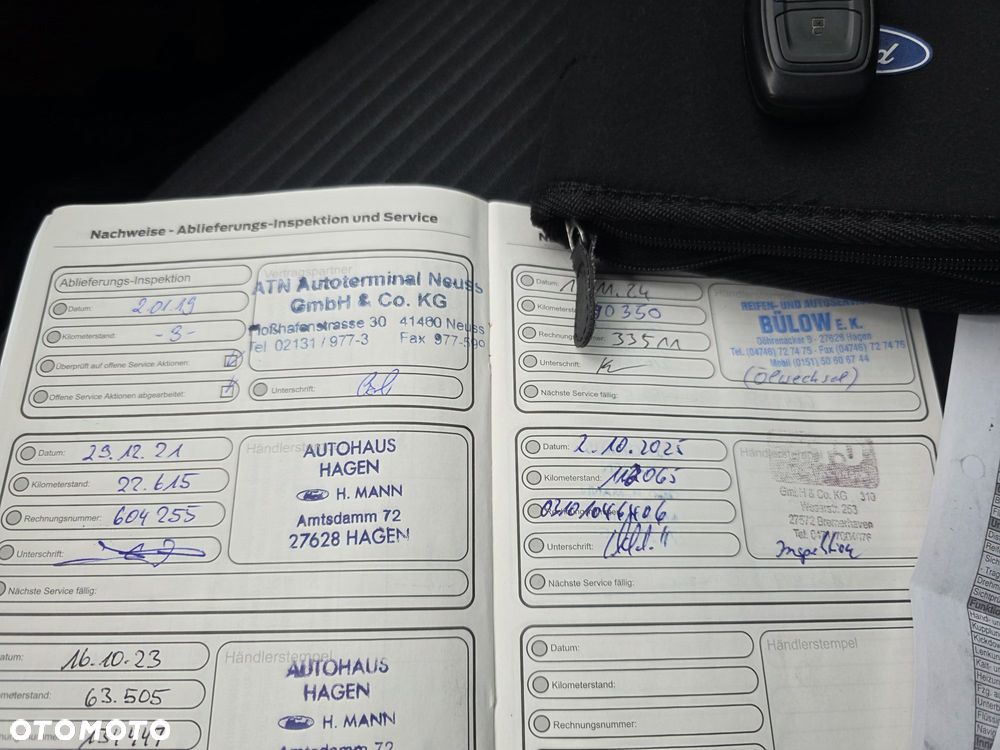 Nachweise - Ablieferungs-Inspektion und Service
Ablieferungs-Inspektion
Datum: 2.01.19
Kilometerstand: -3-
Überprüft auf offene Service Aktionen:
Offene Service Aktionen abgearbeitet:
Vertragspartner
ATN Autoterminal Neuss
GmbH & Co. KG
Moßhafenstrasse 30 41460 Neuss
Tel 02131 / 977-3 Fax 977-590
Unterschrift:
Datum: 29.12.21
Kilometerstand: 22.615
Rechnungsnummer: 604255
Unterschrift:
Nächste Service fällig:
Händlerstempel
AUTOHAUS
HAGEN
Ford H. MANN
Amtsdamm 72
27628 HAGEN
Datum: 16.10.23
Kilometerstand: 63.505
Händlerstempel
AUTOHAUS
HAGEN
H. MANN
Amtsdamm 72
Datum: 11.24
Kilometerstand: 90350
Rechnungsnummer: 33511
Unterschrift:
Nächste Service fällig:
REIFEN- UND AUTOSERVICE
BÜLOW E.K.
Döhrenacker 9 - 27628 Hagen
Tel. (04746) 72 74 75 - Fax (04746) 72 74 76
Mobil (0151) 50 60 67 44
(Ölwechsel)
Datum: 2.10.2025
Kilometerstand: 112065
Unterschrift:
Nächste Service fällig:
Händlerstempel
GmbH & Co. KG 310
Weserstr. 253
27572 Bremerhaven
Inspektion
Datum:
Kilometerstand:
Rechnungsnummer:
Händlerstempel
OTOMOTO